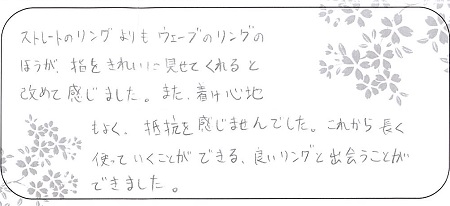 ストレートのリングよりもウェーブのリングの
ほうが、指をきれいに見せてくれると
改めて感じました。また、着け心地
もよく、抵抗を感じませんでした。これから長く
使っていくことができる、良いリングと出会うことが
できました。